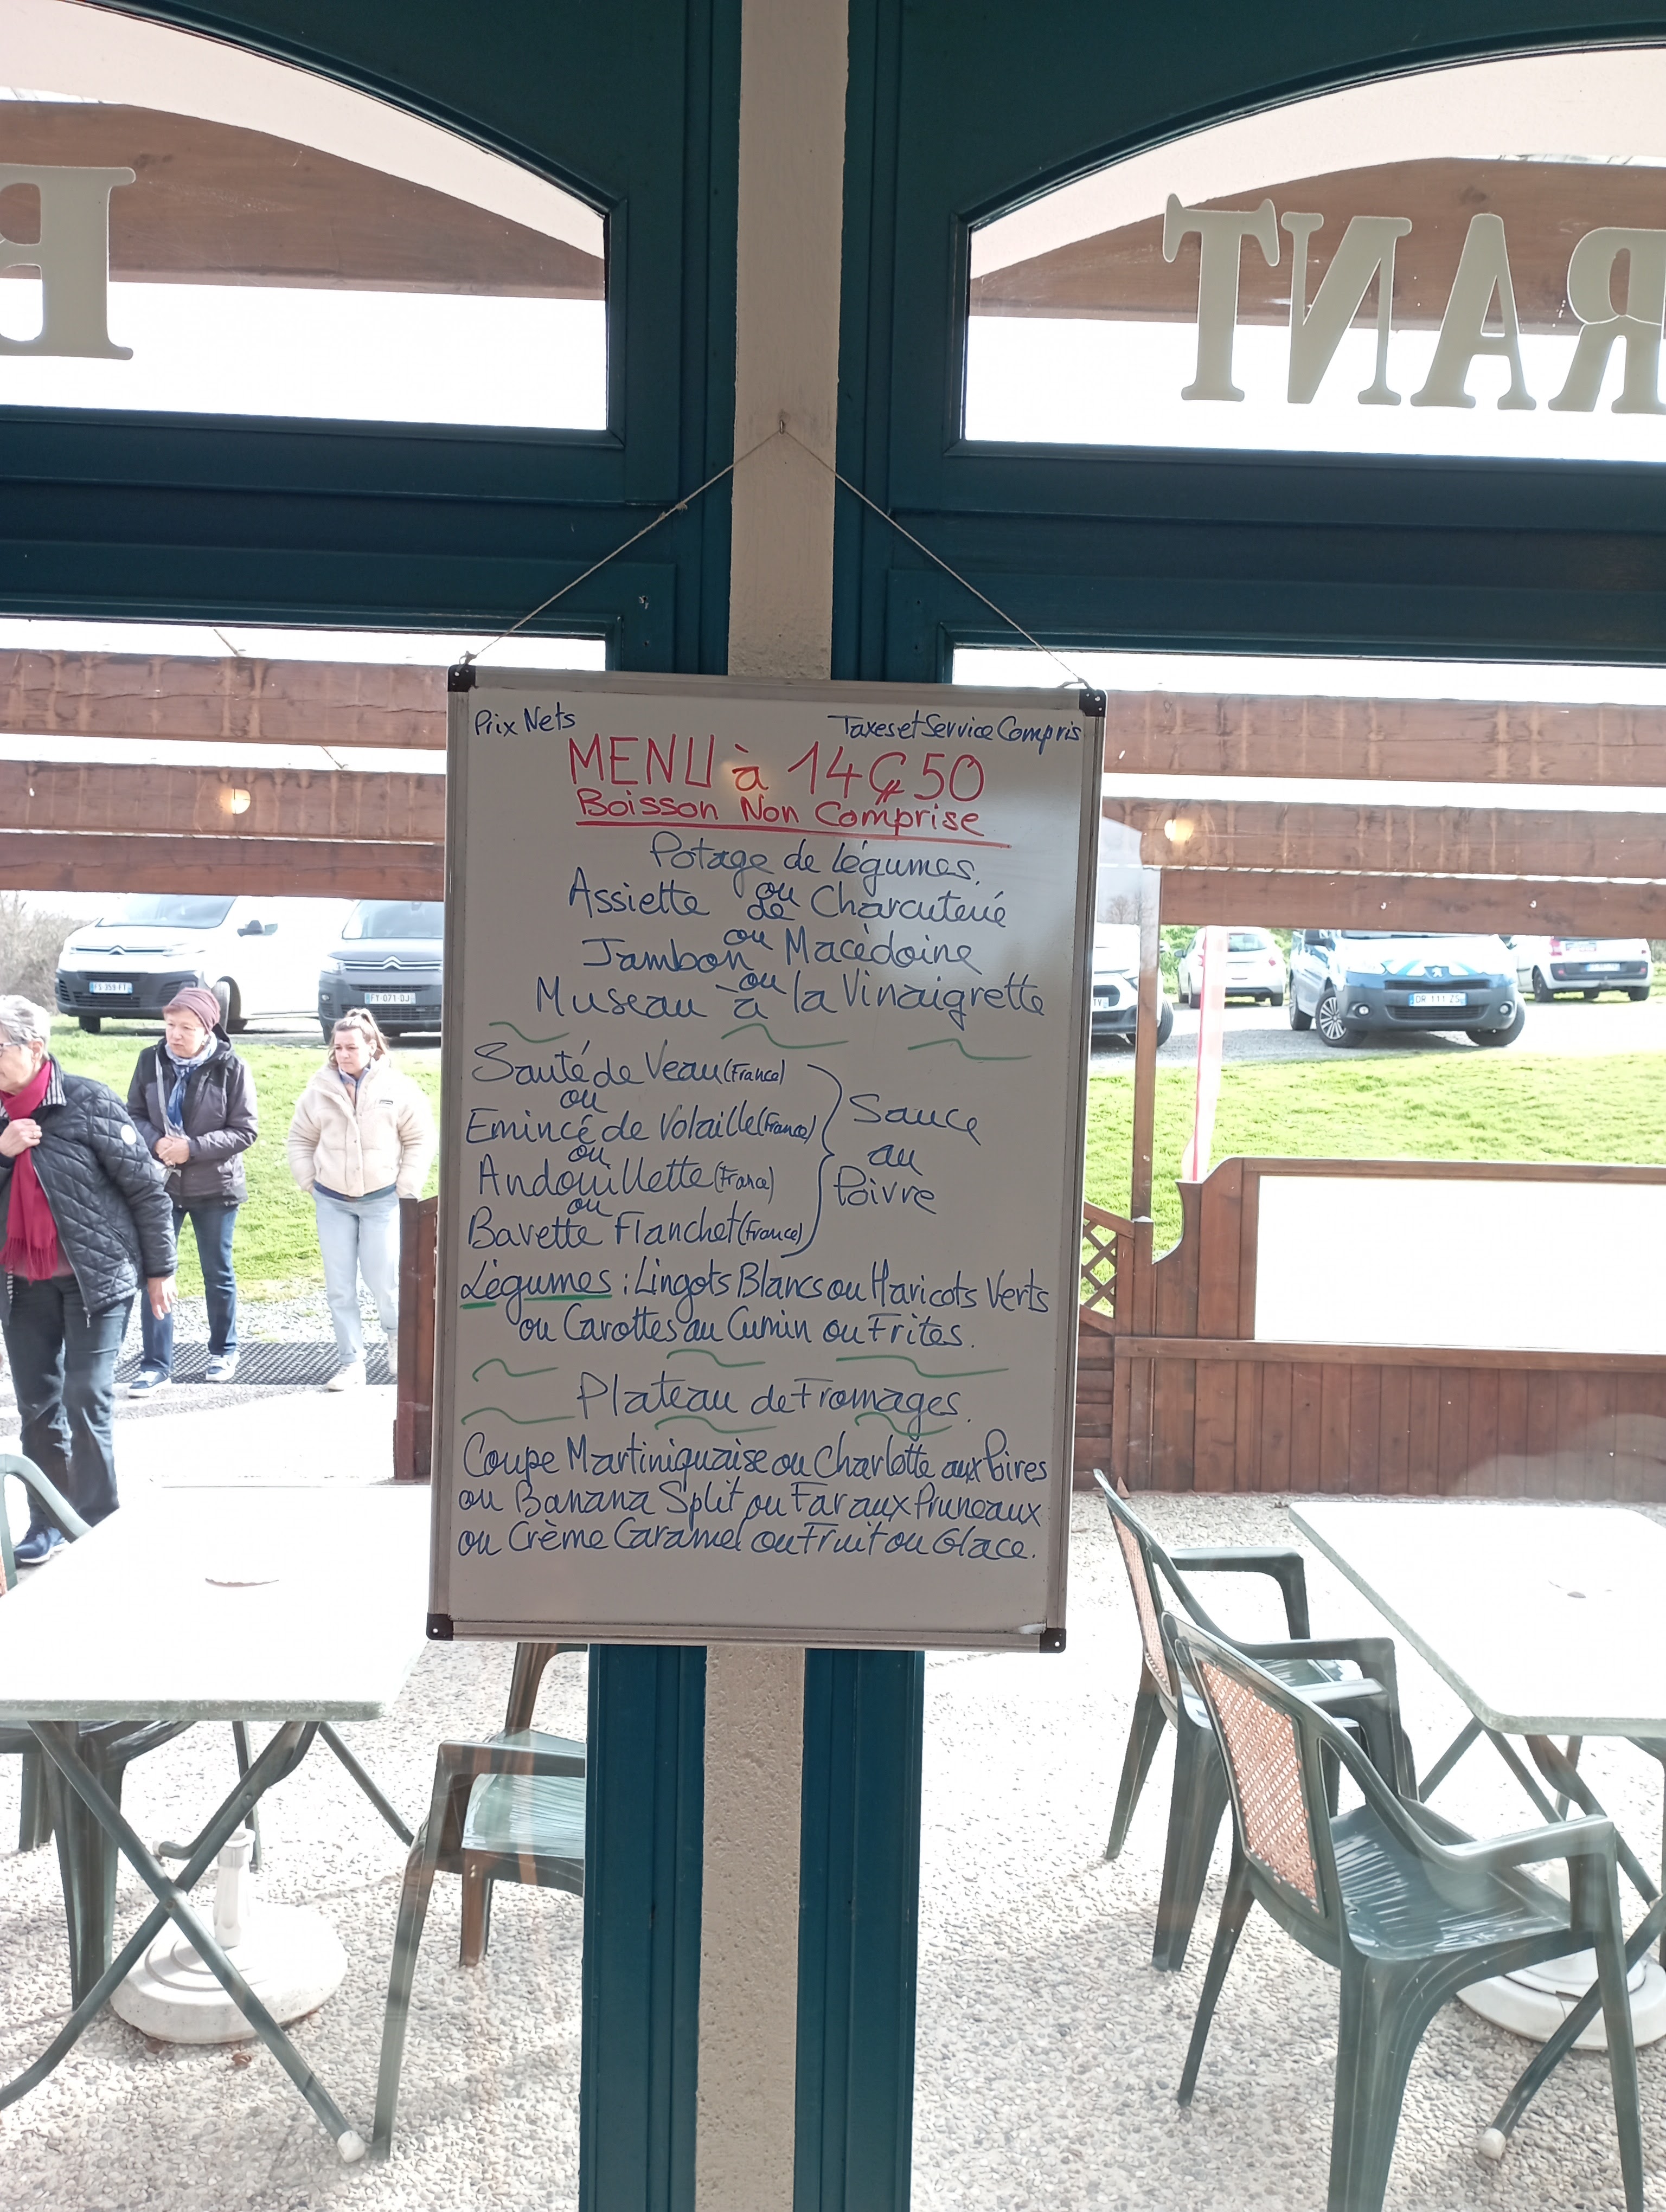 RANT
Prix Nets
Taxes et Service Compris
MENU à 14€50
Boisson Non Comprise
Potage de légumes.
ou
Assiette de Charcuterie
ou
Jambon Macédoine
ou
Museau à la Vinaigrette
Sauté de Veau (France)
ou
Emincé de Volaille (France)
ou
Andouillette (France)
ou
Bavette Flanchet (France)
Sauce
au
Poivre
Légumes : Lingots Blancs ou Haricots Verts
ou Carottes au Cumin ou Frites.
Plateau de Fromages.
Coupe Martiniquaise ou Charlotte aux Poires
ou Banana Split ou Far aux Pruneaux
ou Crème Caramel ou Fruit ou Glace.
FS 359 FT
FY 071 DJ
DR 111 ZS